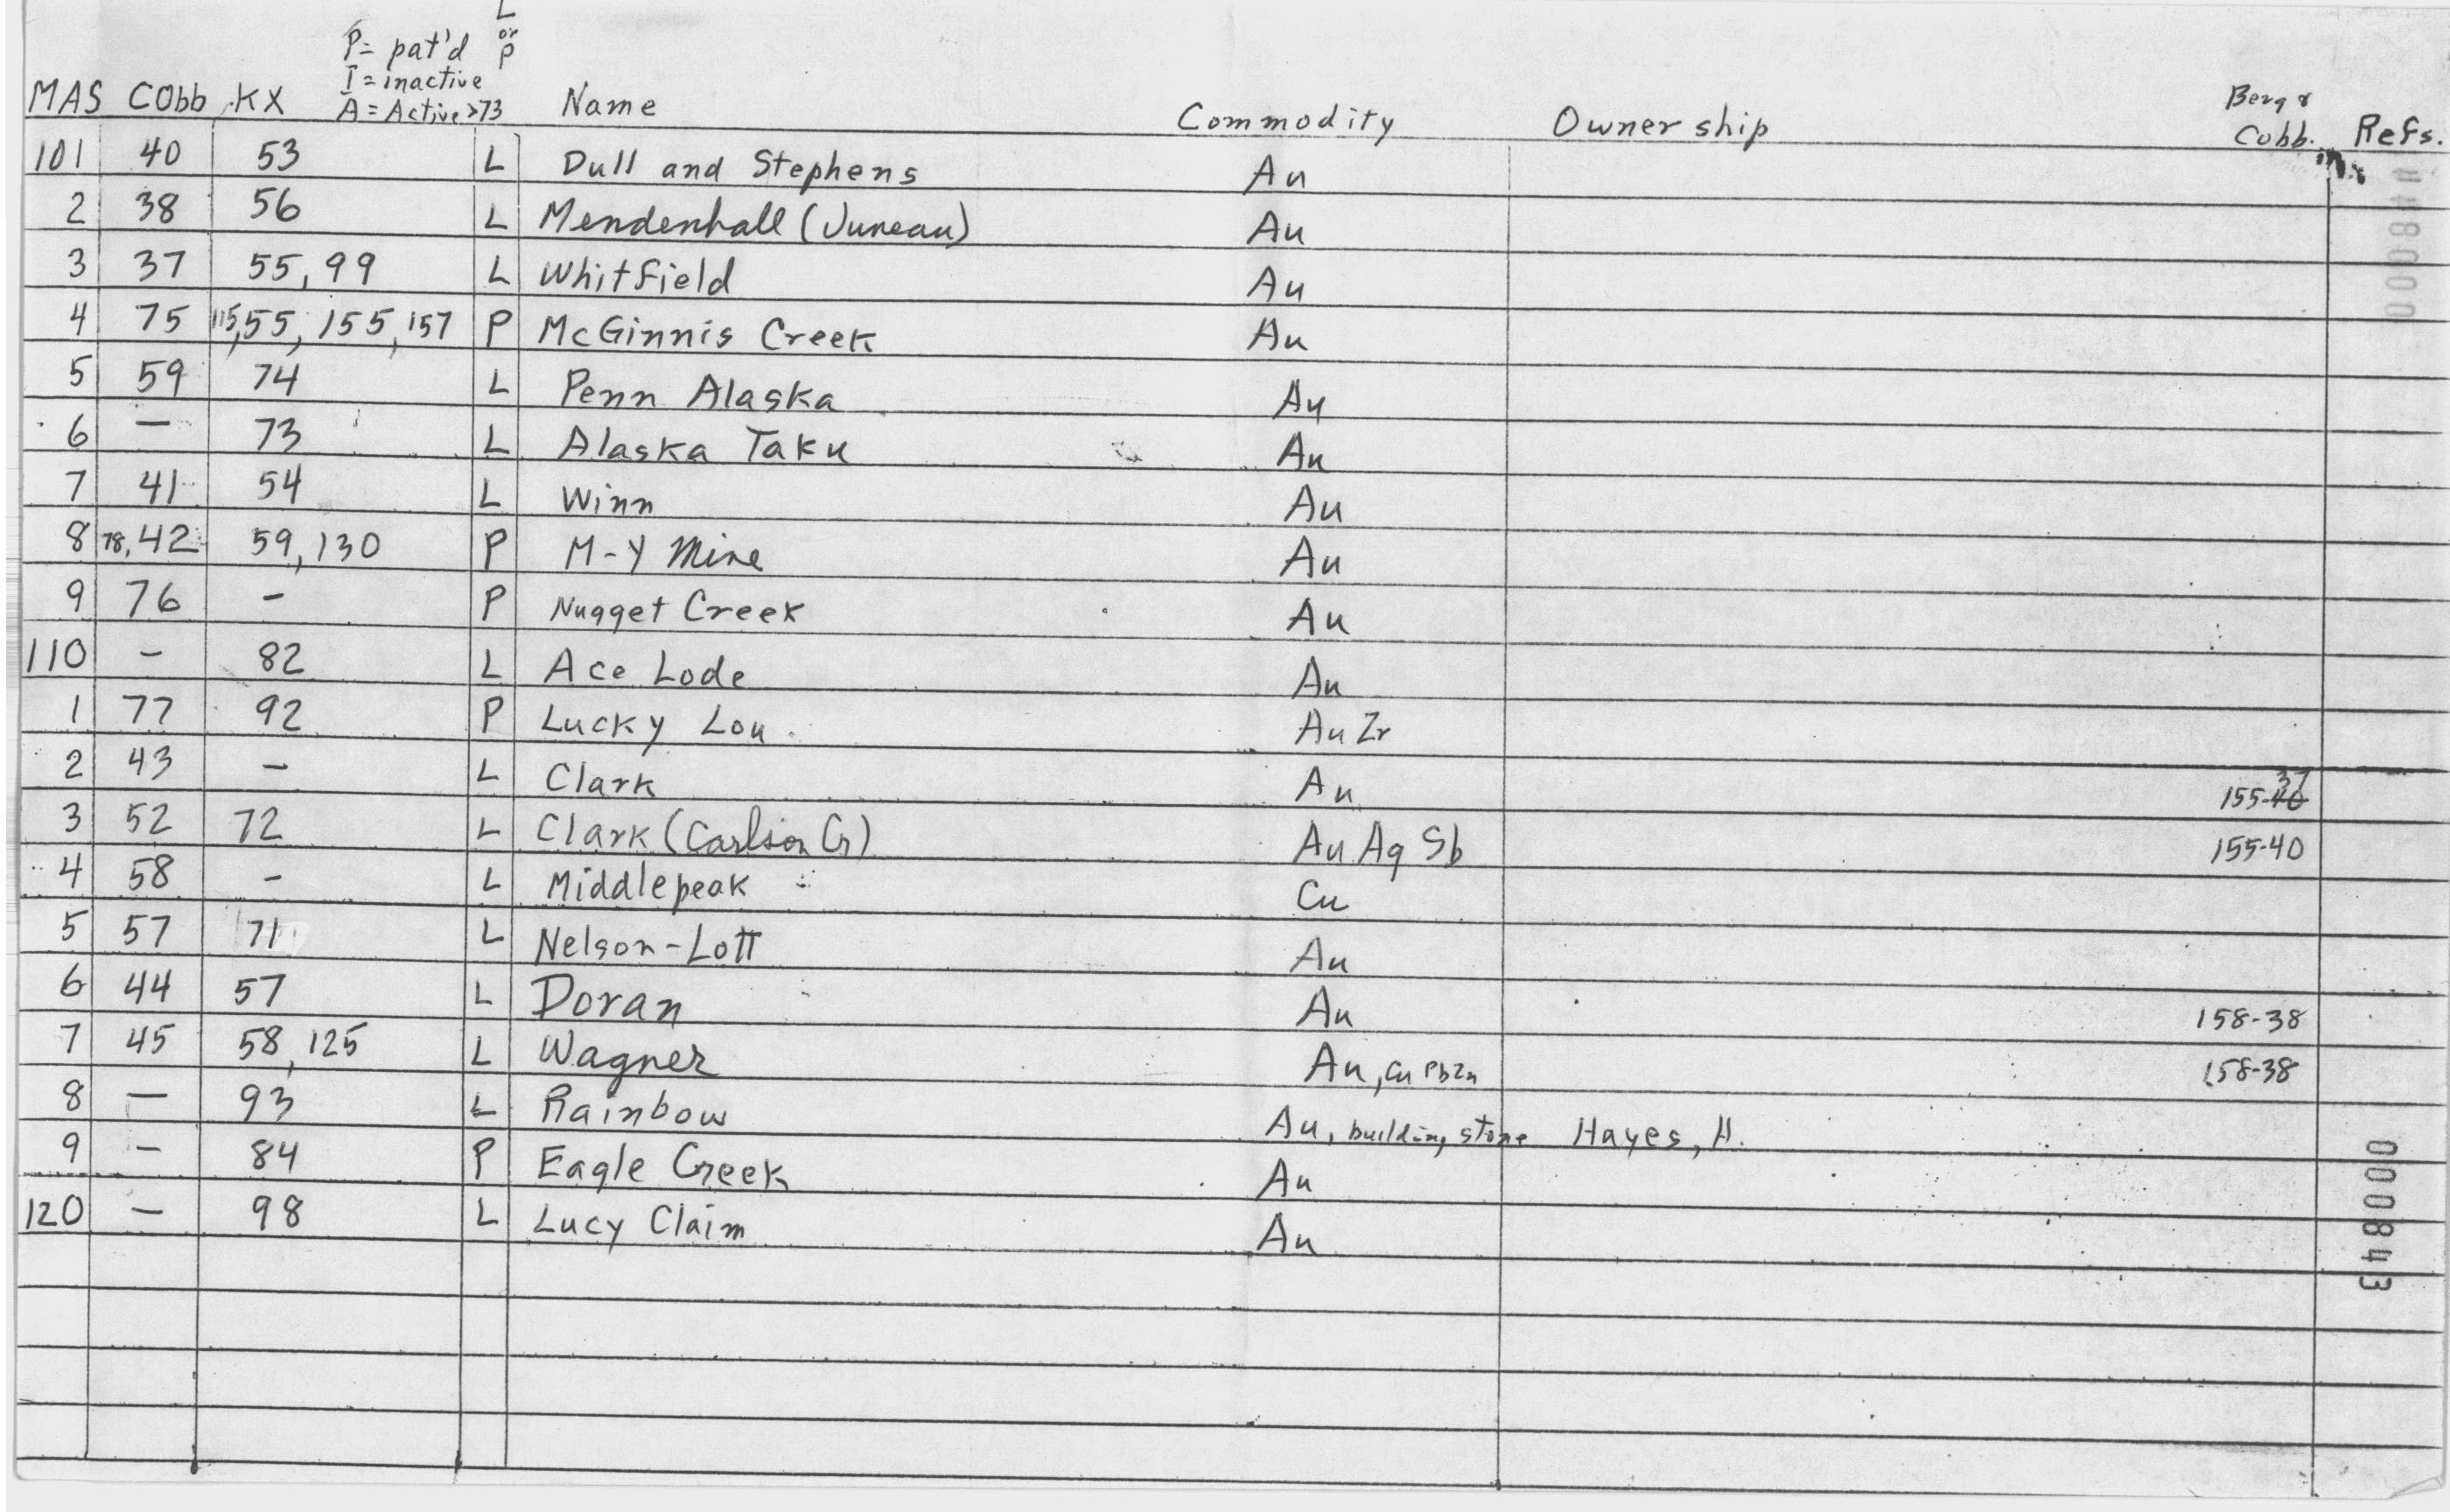 L
or
P
P= pat'd
I= inactive
A= Active >73
MAS Cobb KX Name Commodity Ownership Berg & Cobb. Refs.
101 40 53 L Dull and Stephens Au
2 38 56 L Mendenhall (Juneau) Au
3 37 55, 99 L Whitfield Au
4 75 115, 55, 155, 157 P McGinnis Creek Au
5 59 74 L Penn Alaska Au
6 — 73 L Alaska Taku Au
7 41 54 L Winn Au
8 78, 42 59, 130 P M-Y Mine Au
9 76 - P Nugget Creek Au
110 - 82 L Ace Lode Au
1 77 92 P Lucky Lou Au Zr
2 43 - L Clark Au 155-40 37
3 52 72 L Clark (Carlson Cr) Au Ag Sb 155-40
4 58 - L Middlepeak Cu
5 57 71 L Nelson-Lott Au
6 44 57 L Doran Au 158-38
7 45 58, 125 L Wagner Au, Cu Pb Zn 158-38
8 — 93 L Rainbow Au, building stone Hayes, H.
9 - 84 P Eagle Creek Au
120 — 98 L Lucy Claim Au
000843